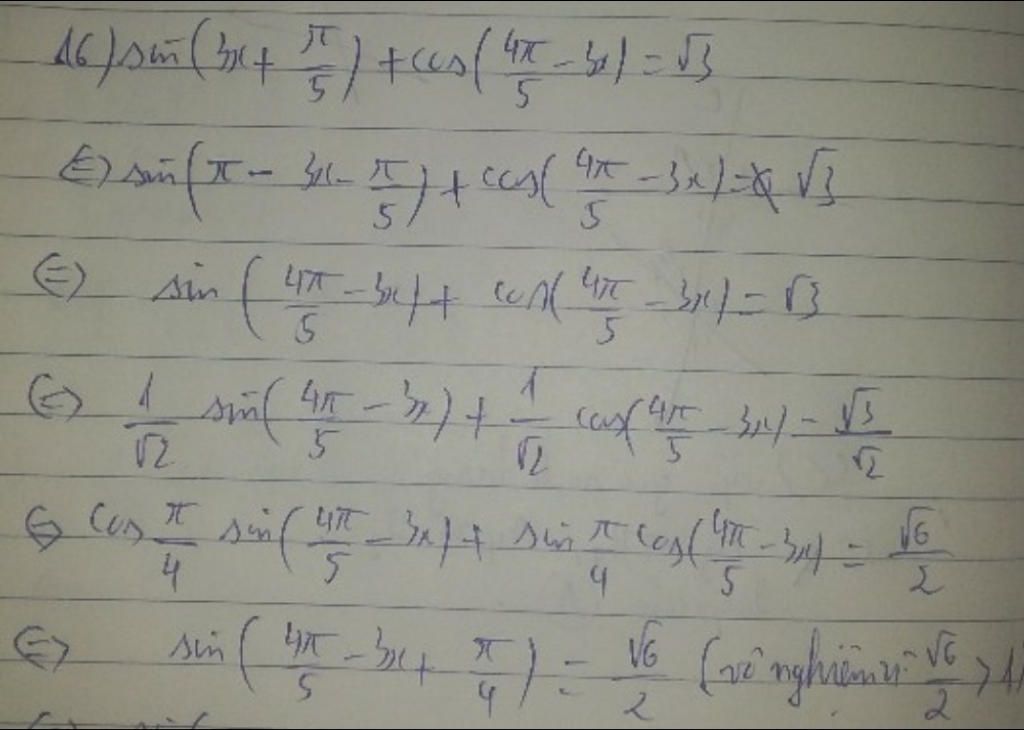 16) sin(3x + π/5) + cos(4π/5 - 3x) = √3
⇔ sin(π - 3x - π/5) + cos(4π/5 - 3x) = √3
⇔ sin(4π/5 - 3x) + cos(4π/5 - 3x) = √3
⇔ 1/√2 sin(4π/5 - 3x) + 1/√2 cos(4π/5 - 3x) = √3/√2
⇔ cos π/4 sin(4π/5 - 3x) + sin π/4 cos(4π/5 - 3x) = √6/2
⇔ sin(4π/5 - 3x + π/4) = √6/2 (vô nghiệm vì √6/2 > 1)